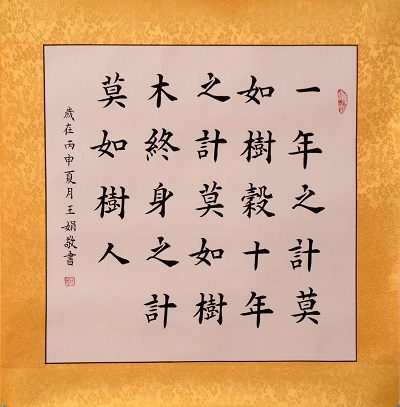 一年之計莫
如樹穀十年
之計莫如樹
木終身之計
莫如樹人
歲在丙申夏月王娟敬書